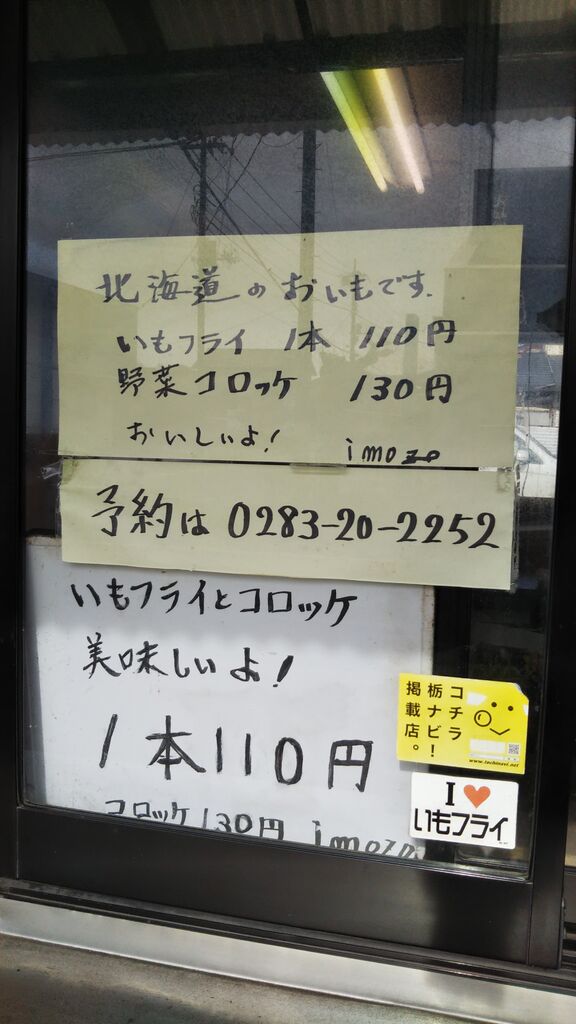 北海道のおいもです.
いもフライ 1本 110円
野菜コロッケ 130円
おいしいよ! imozo
予約は 0283-20-2252
いもフライとコロッケ
美味しいよ!
1本110円
コロッケ 130円 imozo
コチラ
栃ナビ!
掲載店。
www.tochinavi.net
I❤
いもフライ